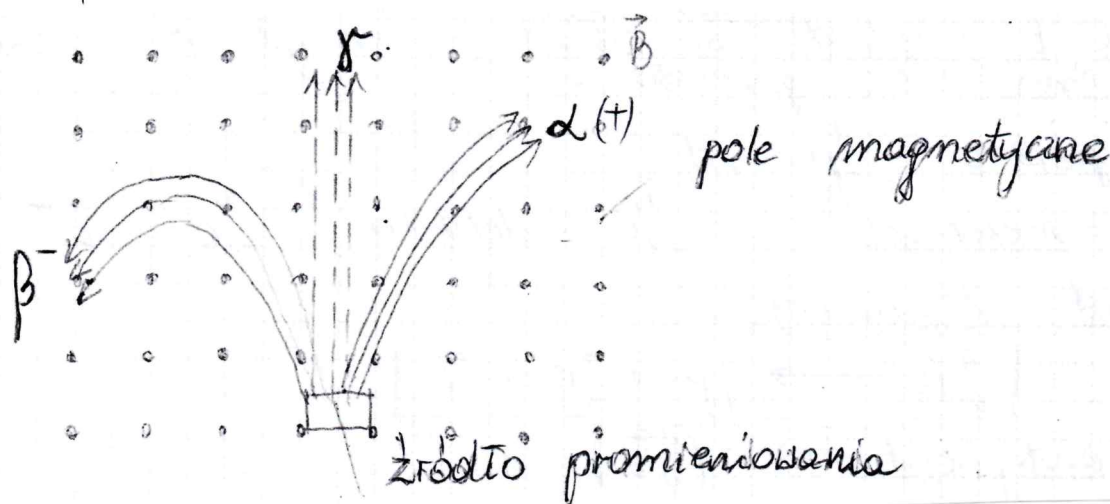 γ
B⃗
α (+)
pole magnetyczne
β⁻
źródło promieniowania